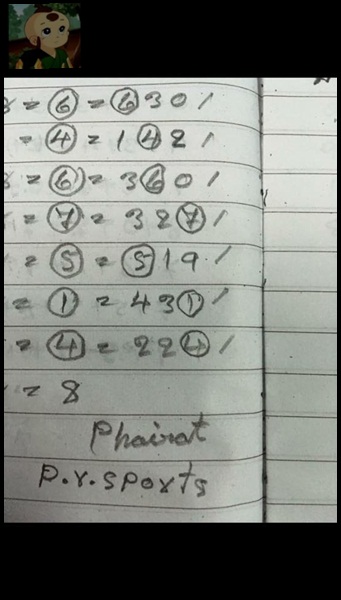 8 = ⑥ = ⑥30/
= ④ = 1④2/
8 = ⑥ = 3⑥0/
= ⑦ = 32⑦/
= ⑤ = ⑤19/
= ① = 43①/
= ④ = 22④/
= 8
Phairat
P.r.sports